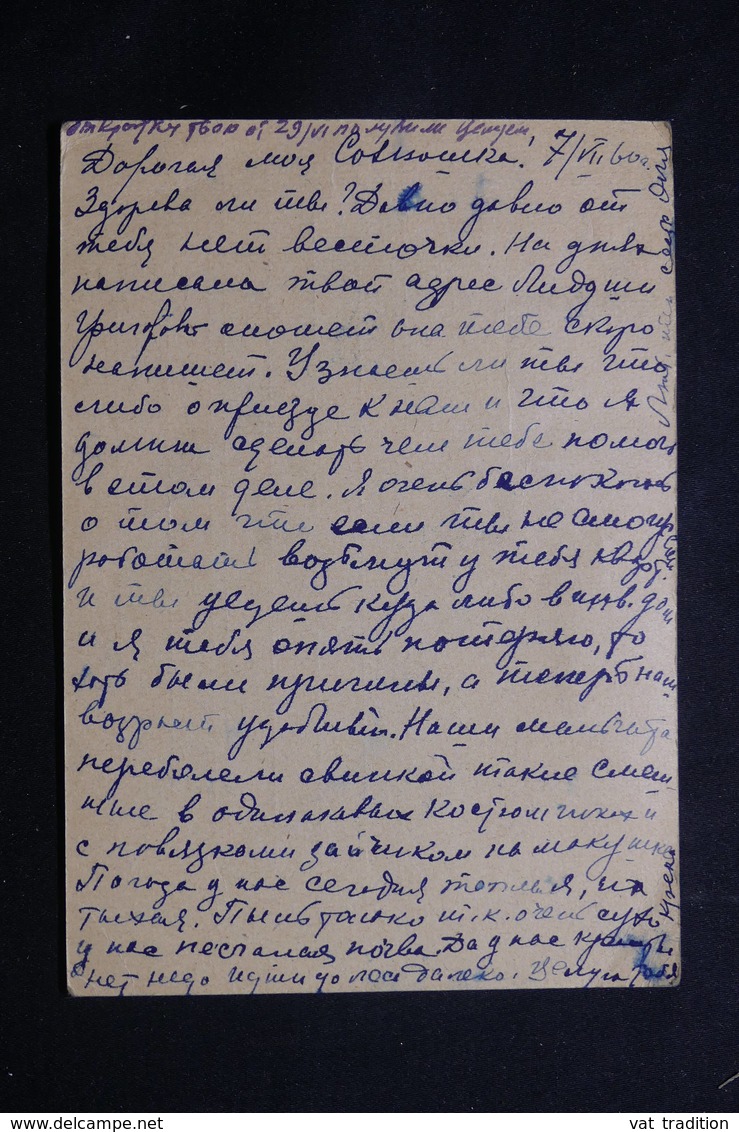 открытку твою от 29/VI получили целуем
Дорогая моя Сонюшка! 7/VII 60г.
Здорова ли ты? Давно давно от
тебя нет весточки. На днях
написала твой адрес Людмил
может она тебе скоро
напишет. Узнаешь ли ты что
либо о приезде к нам и что я
должна сделать чем тебе помочь
в этом деле. Я очень беспокоюсь
о том что если ты не сможешь
работать возьмут у тебя
и ты уедешь куда либо в инв. дом
и я тебя опять потеряю, то
хоть были причины, а теперь наш
возраст. Наши мальчата
переболели свинкой такие смеш-
ные в одинаковых костюмчиках и
с повязками зайчиком на макушке
Погода у нас сегодня теплая,
тихая. Пыль только т.к. очень сухо
у нас песчаная почва. Да у нас
нет надо идти до леса далеко. Целую тебя
крепко